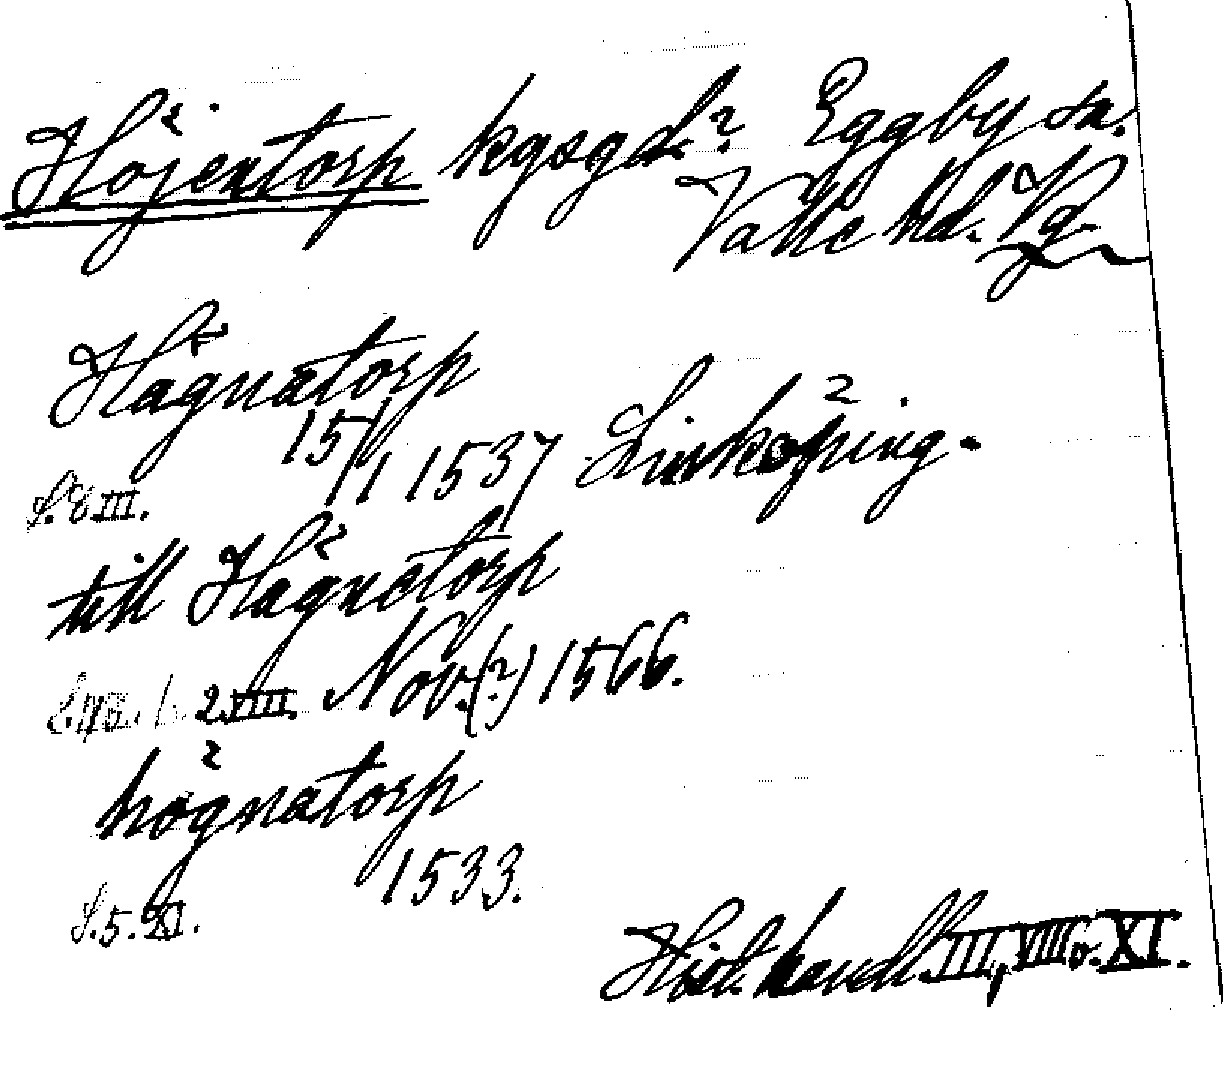 Höjentorp kgsgd.? Eggby sn.
Valle hd. Vg.
Hägnatorp
15/1 1537 Linköping.
S. 8 III.
till Högnetorp
2. VIII. Nov.(?) 1566.
högnatorp
1533.
S. 5. XI.
Hist. handl. III, VIII o. XI.